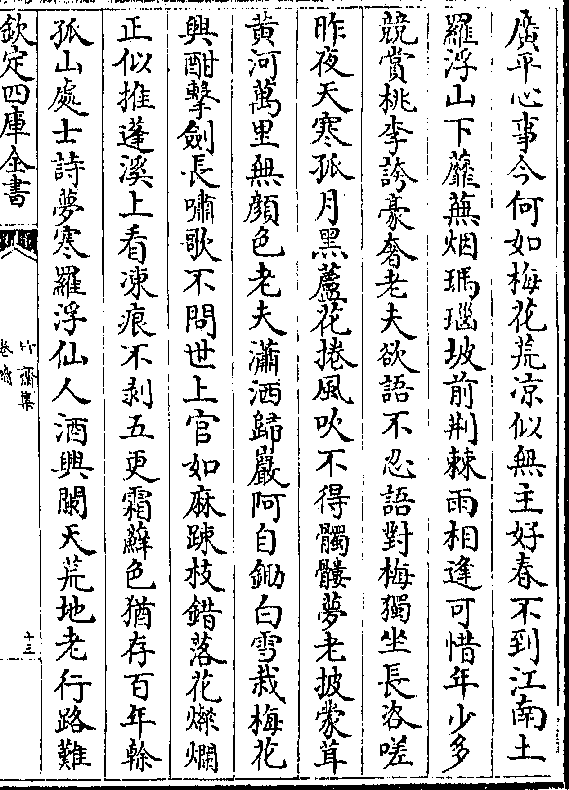 廣平心事今何如梅花荒凉似無主好春不到江南土
羅浮山下蘼蕪烟瑪瑙坡前荆棘雨相逢可惜年少多
競賞桃李誇豪奢老夫欲語不忍語對梅獨坐長咨嗟
昨夜天寒孤月黑蘆花捲風吹不得髑髏夢老披蒙茸
黄河萬里無顔色老夫瀟洒歸巖阿自鋤白雪栽梅花
興酣擊劍長嘯歌不問世上官如麻踈枝錯落花燦爛
正似推蓬溪上看凍痕不剥五更霜蘚色猶存百年榦
孤山處士詩夢寒羅浮仙人酒興闌天荒地老行路難
欽定四庫全書
竹齋集
十三